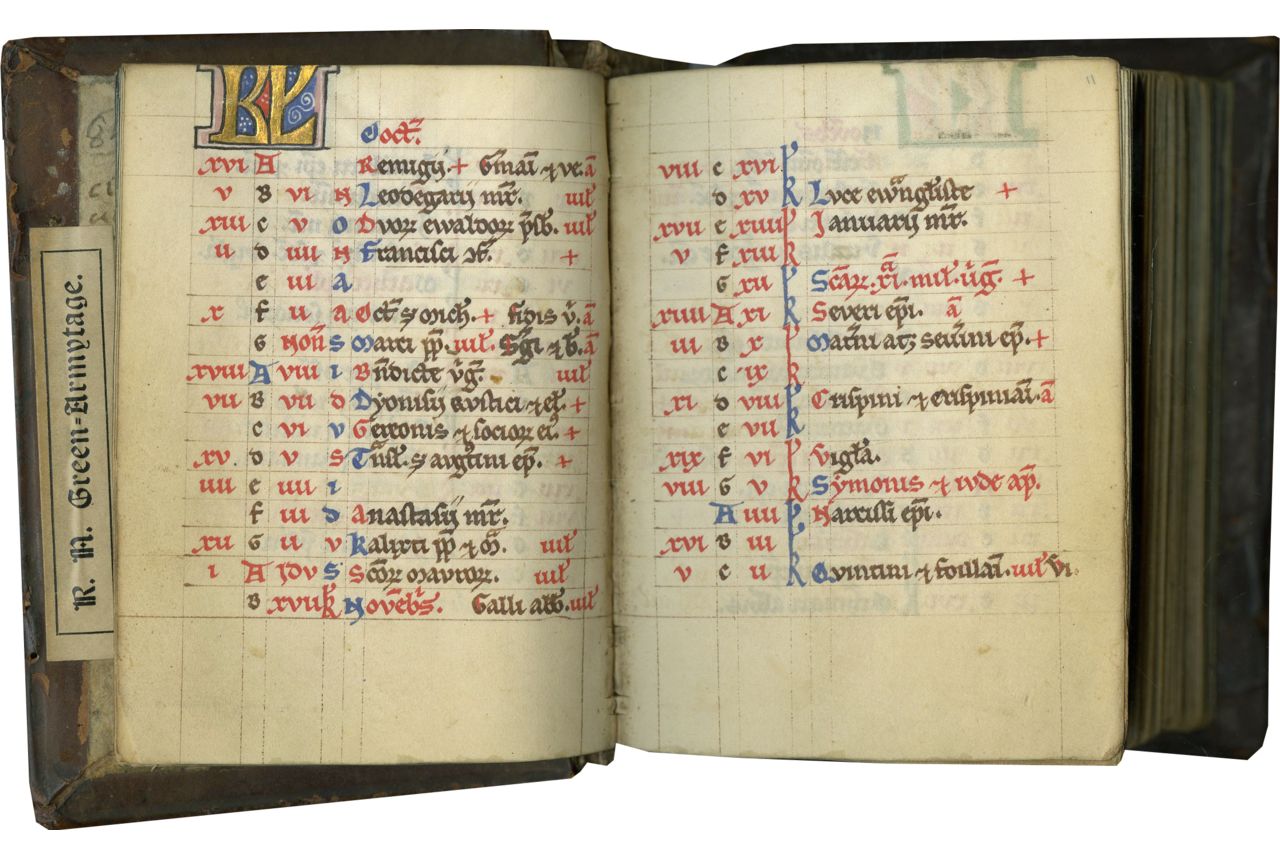 R. N. Green-Armytage.
KL Octr̄.
xvi A Remigij. + Gmaī ⁊ ve. a
v B vi N Leodēgarij mr̄. iiil
xiii c v O Duorꝝ ewaldorꝝ p̄sb. iiil
ii d iiii N Francisci cf̄. +
e iii A
x f ii a Oct̄ s mich. + Fidis v̄. a
G Non̄ S Marci pp̄. iiil. Sḡi ⁊ b. a
xviii A viii i Bn̄dicte v̄g. iiil
vii B vii d Dyonisij rustici ⁊ el. +
c vi v Gereonis ⁊ sociorꝝ ei. +
xv d v S Tn̄sl. s augustini ep̄. +
iiii e iiii i
f iii d Anastasij mr̄.
xii G ii v Kalixti pp̄ ⁊ m̄. iiil
i A Idus S Scōrꝝ maurorꝝ. iiil
B xvii k Novēbs. Galli abb. iiil
11
viii c xvi P
d xv R Luce ewāgliste +
xvi e xiiii P Ianuarij mr̄.
v f xiii R
G xii P Scārꝝ. xi. mil. v̄g. +
xiiii A xi R Severi ep̄i. a
iii B x P Mat̄ni atꝫ severini ep̄. +
c ix R
xi d viii P Crispini ⁊ crispiniani. a
e vii R
xix f vi P Vigl̄a.
viii G v R Symonis ⁊ iude ap̄.
A iiii P Narcissi ep̄i.
xvi B iii
v c ii R Quintini ⁊ foillani. iiil Vi.